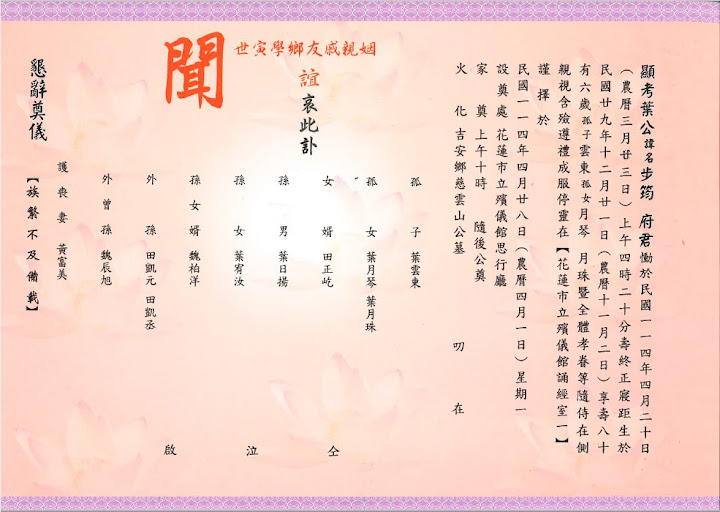 顯考葉公諱名步筠 府君慟於民國一一四年四月二十日
（農曆三月廿三日）上午四時二十分壽終正寢距生於
民國廿九年十二月廿一日（農曆十一月二日）享壽八十
有六歲孤子雲東孤女月琴 月珠暨全體孝眷等隨侍在側
親視含殮遵禮成服停靈在【花蓮市立殯儀館誦經室一】
謹擇於
民國一一四年四月廿八日（農曆四月一日）星期一
設奠處 花蓮市立殯儀館思行廳
家奠 上午十時 隨後公奠
火化 吉安鄉慈雲山公墓 叨在
姻親戚友鄉學寅世
誼哀此訃
聞
孤子 葉雲東
孤女 葉月琴 葉月珠
女婿 田正屹
孫男 葉日揚
孫女 葉宥汝
孫女婿 魏柏洋
外孫 田凱元 田凱丞
外曾孫 魏辰旭
護喪妻 黃富美
仝泣啟
【族繁不及備載】
懇辭奠儀